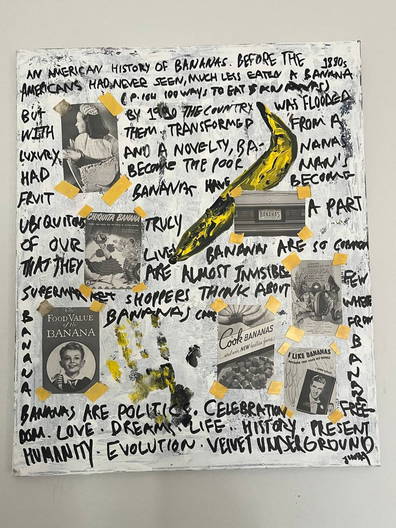 AN AMERICAN HISTORY OF BANANAS. BEFORE THE 1880s
AMERICANS HAD NEVER SEEN, MUCH LESS EATEN A BANANA
(P. 104 100 WAYS TO EAT BANANAS)
BUT BY 1910 THE COUNTRY WAS FLOODED
WITH THEM. TRANSFORMED FROM A
LUXURY AND A NOVELTY, BA- NANA
HAD BECOME THE POOR MAN'S
FRUIT BANANAS HAVE BECOME
BANANAS
UBIQUITOUS TRULY A PART
CHIQUITA BANANA'S
OF OUR LIVES BANANA ARE SO COMMON
THAT THEY ARE ALMOST INVISIBLE
FEW
SUPERMARKET SHOPPERS THINK ABOUT
WHERE
BANANAS COME
FROM
The
FOOD VALUE
of the
BANANA
Cook BANANAS
I LIKE BANANAS
BANANA
BANANAS ARE POLITICS. CELEBRATION. FREE-
DOM. LOVE. DREAMS. LIFE. HISTORY. PRESENT
HUMANITY. EVOLUTION. VELVET UNDERGROUND